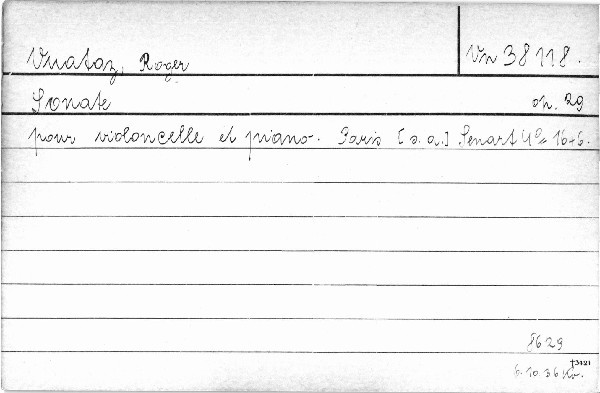 Vuataz, Roger
Vn 38118.
Sonate op. 29
pour violoncelle et piano. Paris [s. a.] Senart 4° 16+6.
8629
†3421
6.10.36 Kv.